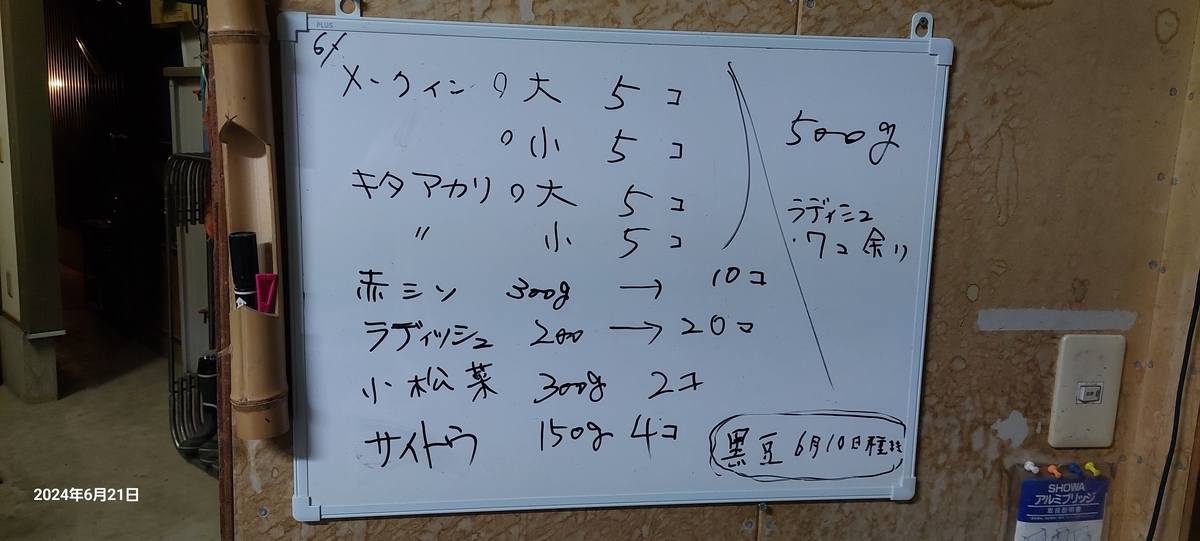 PLUS
6/
メークイン 大 5コ
〃 小 5コ
キタアカリ 〃 大 5コ
〃 小 5コ
赤ミソ 300g → 10コ
ラディッシュ 200 → 20コ
小松菜 300g 2コ
サイトウ 150g 4コ
500g
ラディシュ
・7コ余り
黒豆 6月10日種
SHOWA
アルミブリッジ
取扱説明書
2024年6月21日